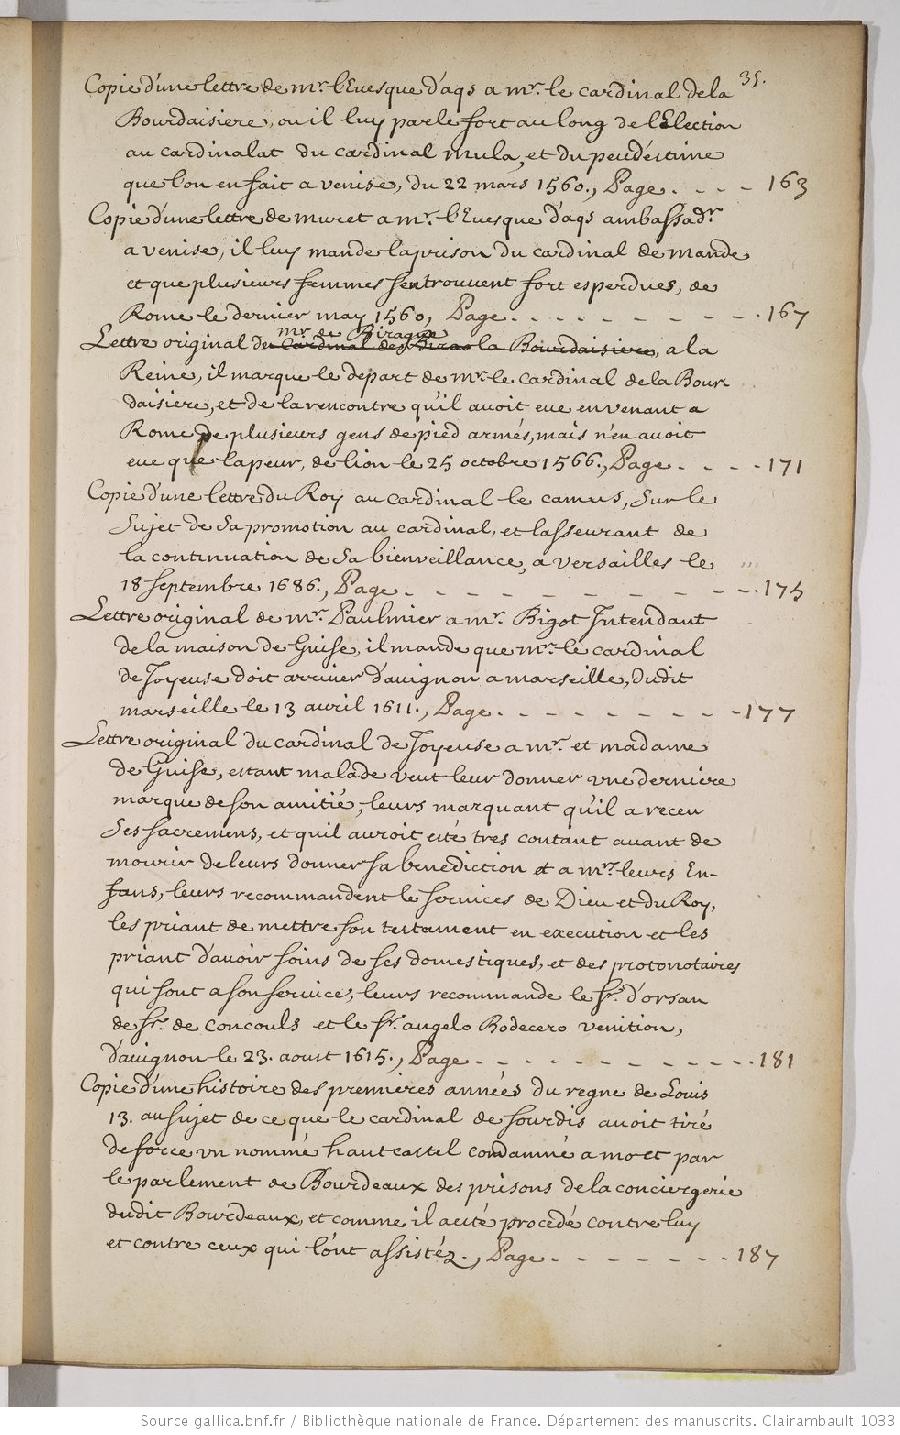 35.
Copie d'une lettre de mr. l'Euesque d'aqs a mr. le cardinal de la
Bourdaisiere, ou il luy parle fort au long de l'Election
au cardinalat du cardinal mula, et du peu d'estime
que l'on en fait a venise, du 22 mars 1560., Page . - - - 163
Copie d'une lettre de muret a mr. l'Euesque d'aqs ambassadr.
a venise, il luy mande la prison du cardinal de mande
et que plusieurs femmes s'en trouvent fort esperdues, de
Rome le dernier may 1560, Page . . - - - - - - . 167
mr. de Birague
Lettre original du cardinal de Biraa la Bourdaisiere, a la
Reine, il marque le depart de mr. le cardinal de la Bour-
daisiere, et de la rencontre qu'il auoit eue en venant a
Rome de plusieurs gens de pied armés, mais n'en auoit
eue que la peur, de lion le 25 octobre 1566., Page . - - - - 171
Copie d'une lettre du Roy au cardinal le camus, Sur le
Sujet de Sa promotion au cardinal, et l'asseurant de
la continuation de Sa bienveillance, a versailles le
18 septembre 1686., Page - - - - - - - - - - 175
Lettre original de mr. Paulmier a mr. Bigot Intendant
de la maison de Guise, il mande que mr. le cardinal
de Joyeuse doit arriver d'auignon a marseille, Dudit
marseille le 13 avril 1611., Page - - - - - - - - - 177
Lettre original du cardinal de Joyeuse a mr. et madame
de Guise, estant malade veut leur donner vne derniere
marque de son amitié, leurs marquant qu'il a receu
Ses sacremens, et quil auroit esté tres contant auant de
mourir de leurs donner sa benediction et a mrs. leurs En-
fans, leurs recommandent le services de Dieu et du Roy,
les priant de mettre son testament en execution et les
priant d'avoir soins de ses domestiques, et des protonotaires
qui sont a son services, leurs recommande le sr. d'orsan
de sr. de Concouls et le sr. angelo Rodecero venition,
d'auignon le 23. aoust 1615., Page - - - - - - - - - - 181
Copie d'une histoire des premieres années du regne de Louis
13. au sujet de ce que le cardinal de sourdis auoit tiré
de force vn nommé hautcastel condamné a mort par
le parlement de Bourdeaux des prisons de la conciergerie
dudit Bourdeaux, et comme il a esté procedé contre luy
et contre ceux qui l'ont assistéz., Page - - - - - - - 187
Source gallica.bnf.fr / Bibliothèque nationale de France. Département des manuscrits. Clairambault 1033